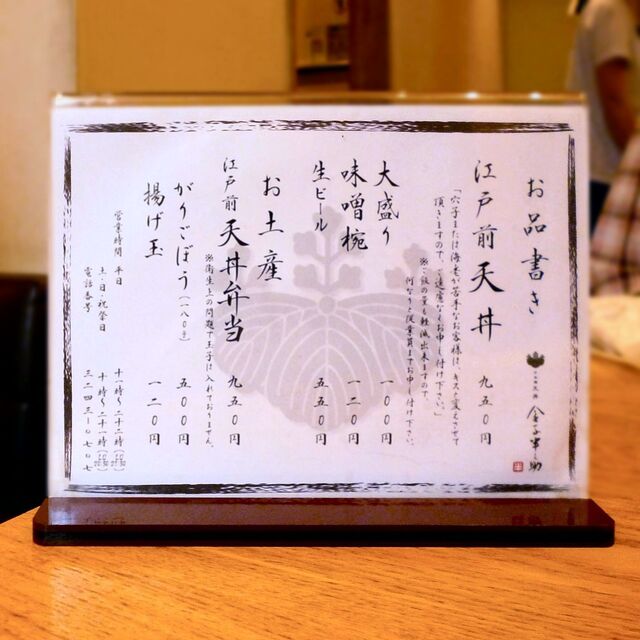 お品書き
金子半之助
江戸前天丼 九五〇円
「穴子または海老が苦手なお客様は、お久え変えさせて
頂きますので、ご遠慮なくお申し付け下さい。」
※ご飯の量も軽減出来ますので、
何なりと従業員までお申し付け下さい。
大盛り 一〇〇円
味噌椀 一二〇円
生ビール 五五〇円
お土産
江戸前天丼弁当 九五〇円
※衛生上の問題で玉子は入れておりません。
がりごぼう(一八〇g) 五〇〇円
揚げ玉 一二〇円
営業時間 平日 十一時〜二十二時
土・日・祝祭日 十時〜二十一時
電話番号 三二四三-〇七〇七